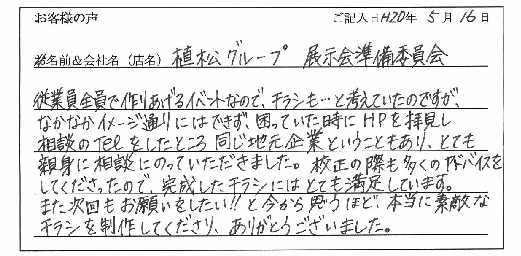 お客様の声 ご記入日H20年 5月 16日
お名前&会社名(店名) 植松グループ 展示会準備委員会
従業員全員で作りあげるイベントなので、チラシも…と考えていたのですが、
なかなかイメージ通りにはできず、困っていた時にHPを拝見し
相談のTelをしたところ 同じ地元企業ということもあり、とても
親身に相談にのっていただきました。校正の際も多くのアドバイスを
してくださったので、完成したチラシにはとても満足しています。
また次回もお願いをしたい!!と今から思うほど、本当に素敵な
チラシを制作してくださり、ありがとうございました。